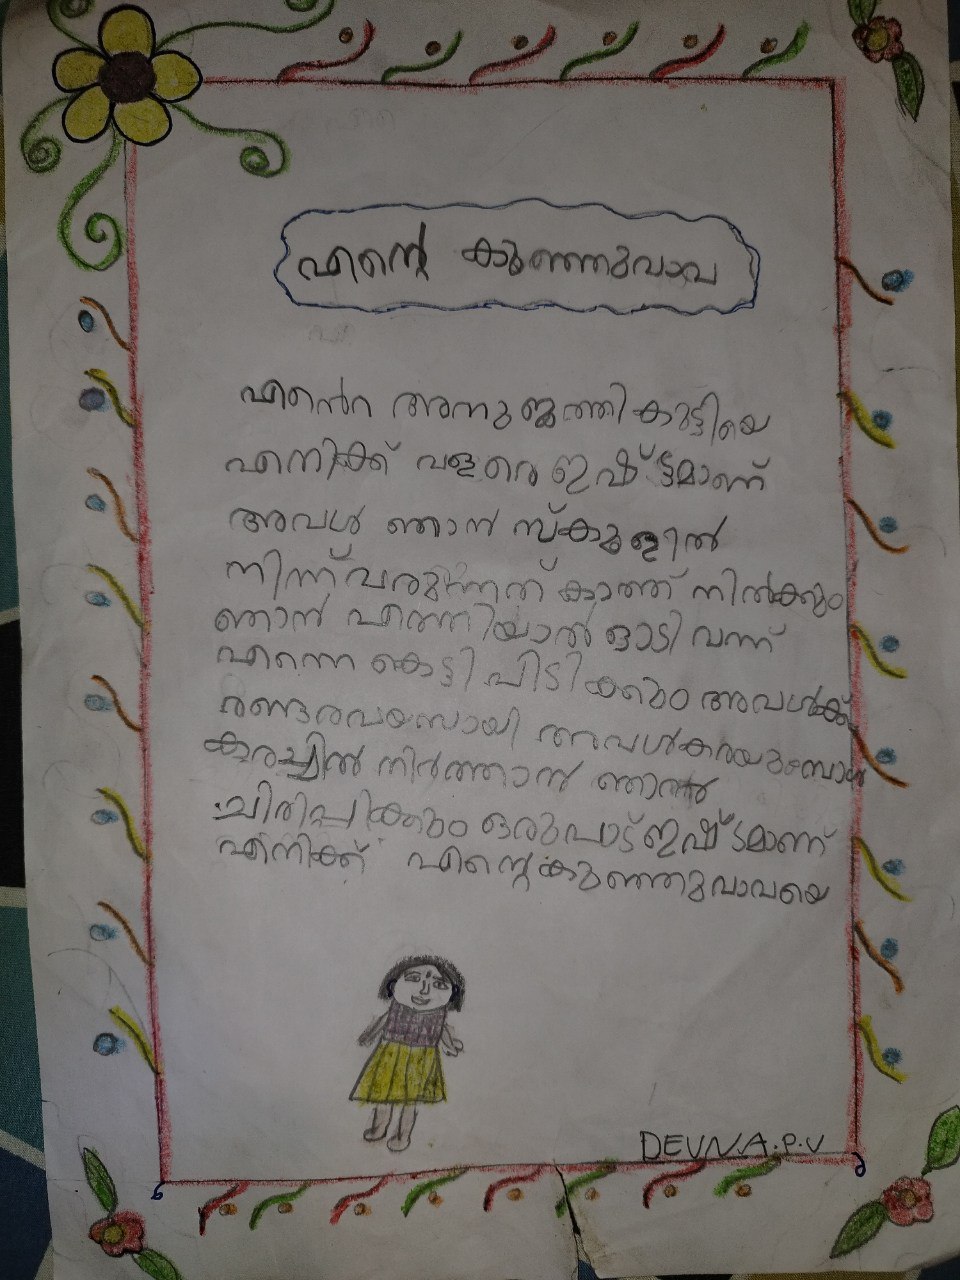 എന്റെ കുഞ്ഞുവാവ
എൻെറ അനുജത്തികുട്ടിയെ
എനിക്ക് വളരെ ഇഷ്ട്ടമാണ്
അവൾ ഞാൻ സ്കുളിൽ
നിന്ന് വരുന്നത് കാത്ത് നിൽക്കും
ഞാൻ എത്തിയാൽ ഓടി വന്ന്
എന്നെ കെട്ടി പിടിക്കും അവൾക്ക്
രണ്ടരവയസായി അവൾകരയുമ്പോൾ
കരച്ചിൽ നിർത്താൻ ഞാൻ
ചിരിപ്പിക്കും ഒരുപാട് ഇഷ്ടമാണ്
എനിക്ക് എന്റെ കുഞ്ഞുവാവയെ
DEVNA.P.V